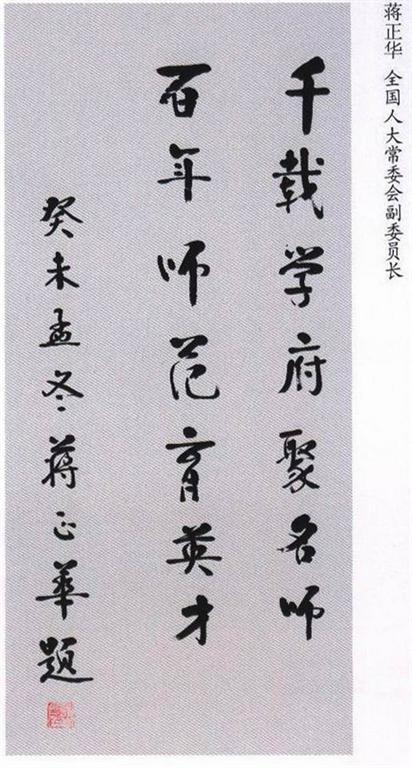 蒋正华 全国人大常委会副委员长
千载学府聚名师
百年师范育英才
癸未孟冬蒋正华题